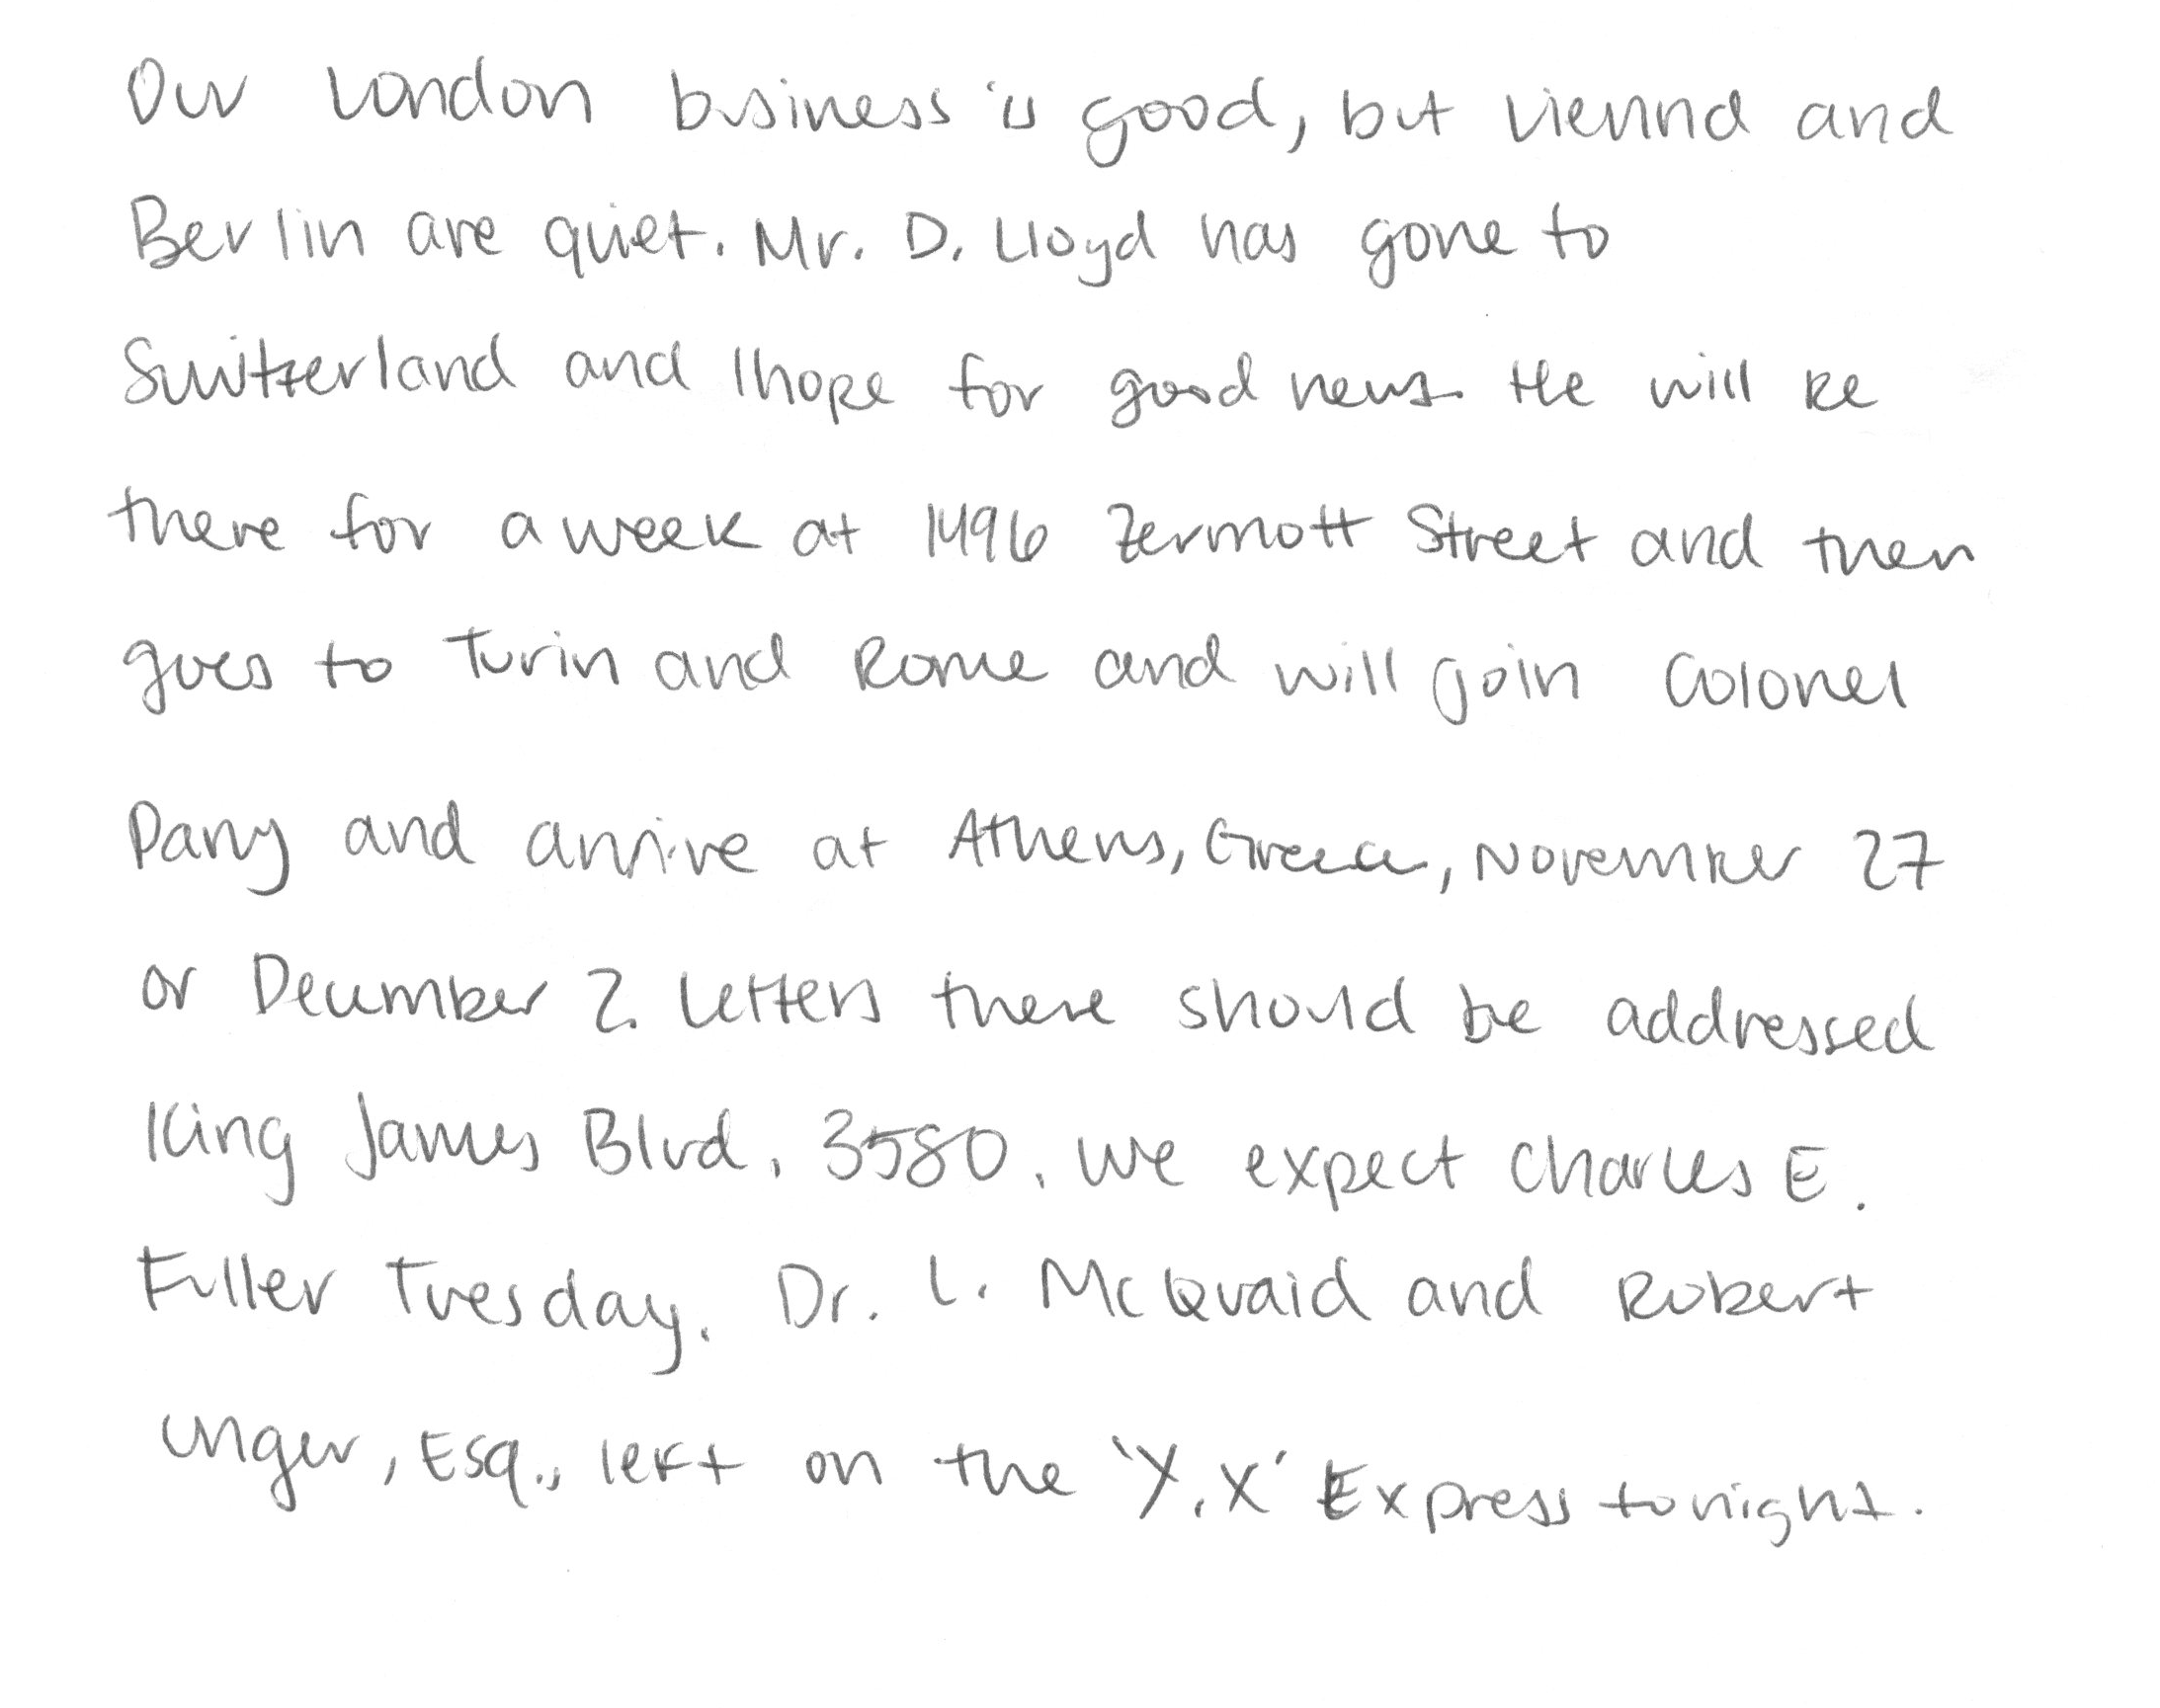 Our London business is good, but Vienna and
Berlin are quiet. Mr. D. Lloyd has gone to
Switzerland and I hope for good news. He will be
there for a week at 1496 Zermott Street and then
goes to Turin and Rome and will join Colonel
Parry and arrive at Athens, Greece, November 27
or December 2. Letters there should be addressed
King James Blvd. 3580. We expect Charles E.
Fuller Tuesday. Dr. L. McQuaid and Robert
Unger, Esq., left on the 'Y.X' Express tonight.